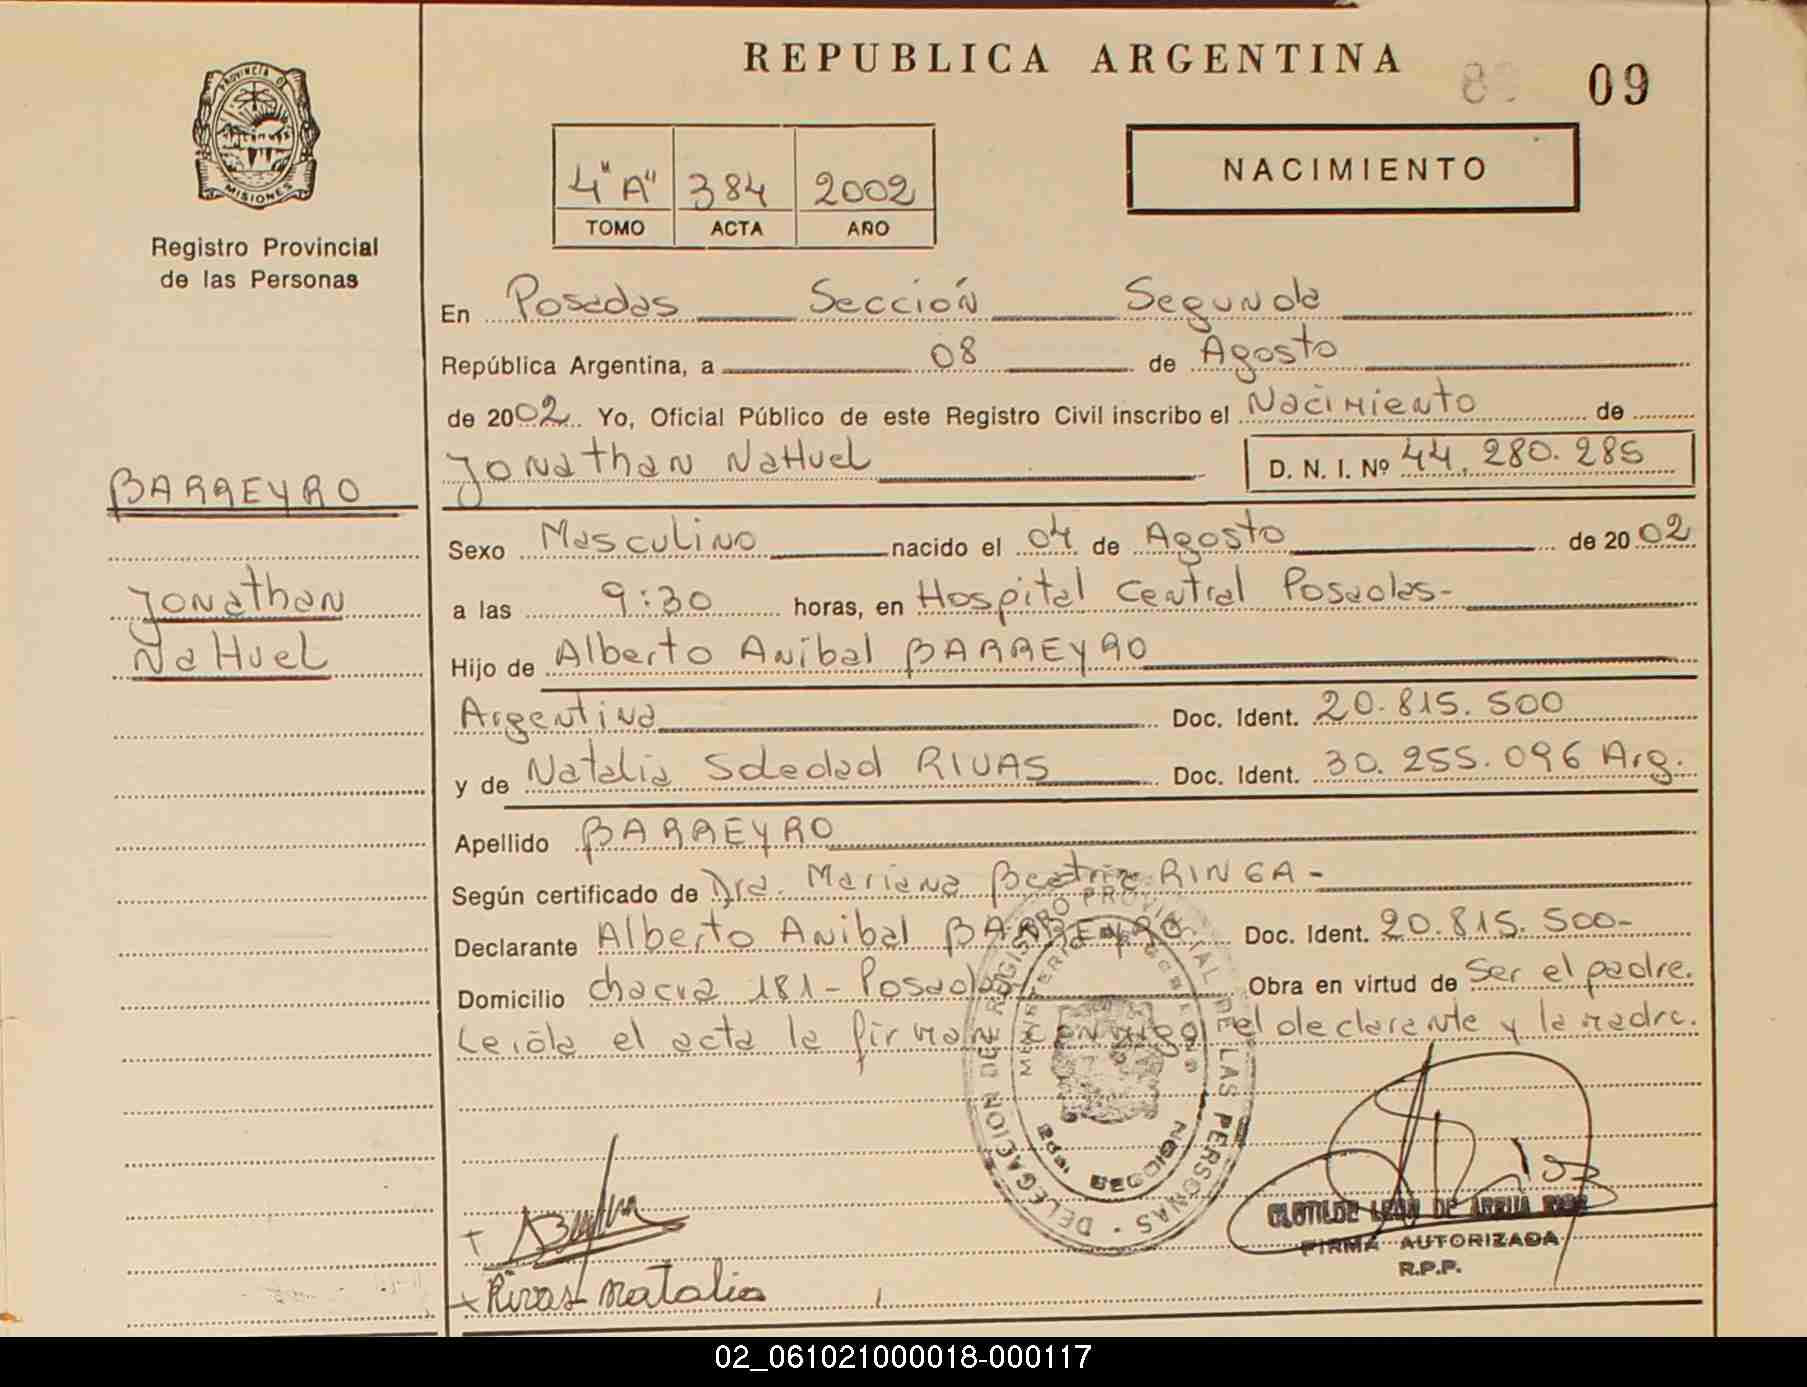 REPUBLICA ARGENTINA
09
PROVINCIA DE
MISIONES
Registro Provincial
de las Personas
4" A" 384 2002
TOMO ACTA AÑO
NACIMIENTO
En Posadas Sección Segunda
República Argentina, a 08 de Agosto
de 2002. Yo, Oficial Público de este Registro Civil inscribo el Nacimiento de
Jonathan Nahuel D. N. I. Nº 44.280.285
BARREYRO
Jonathan
Nahuel
Sexo Masculino nacido el 04 de Agosto de 2002
a las 9:30 horas, en Hospital Central Posadas-
Hijo de Alberto Anibal BARREYRO
Argentina Doc. Ident. 20.815.500
y de Natalia Soledad RIVAS Doc. Ident. 30.255.096 Arg.
Apellido BARREYRO
Según certificado de Dra. Mariana Beatriz RINGA-
Declarante Alberto Anibal BARREYRO Doc. Ident. 20.815.500-
Domicilio chacra 181- Posadas Obra en virtud de Ser el padre.
Leida el acta la firman conmigo el declarante y la madre.
DELEGACION DEL REGISTRO PROVINCIAL DE LAS PERSONAS
MINISTERIO DE GOBIERNO
2da. SECCION
CLOTILDE LEON DE ARRUA RIOS
FIRMA AUTORIZADA
R.P.P.
Rivas Natalia
02_061021000018-000117